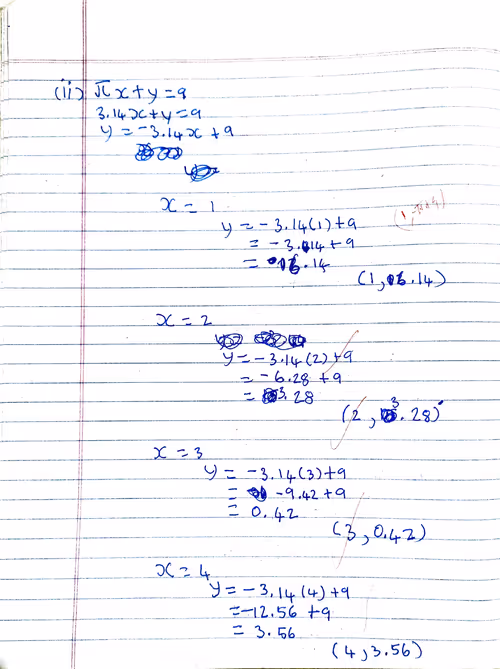 (ii) πx+y=9
3.14x+y=9
y=-3.14x+9
x = 1
y = -3.14(1)+9
= -3.14+9
= 6.14
(1, 6.14)
(1, -π+9)
x = 2
y = -3.14(2)+9
= -6.28 +9
= 3.28
(2, 3.28)
x = 3
y = -3.14(3)+9
= -9.42+9
= 0.42
(3, 0.42)
x = 4
y = -3.14(4)+9
=-12.56 +9
= 3.56
(4, 3.56)